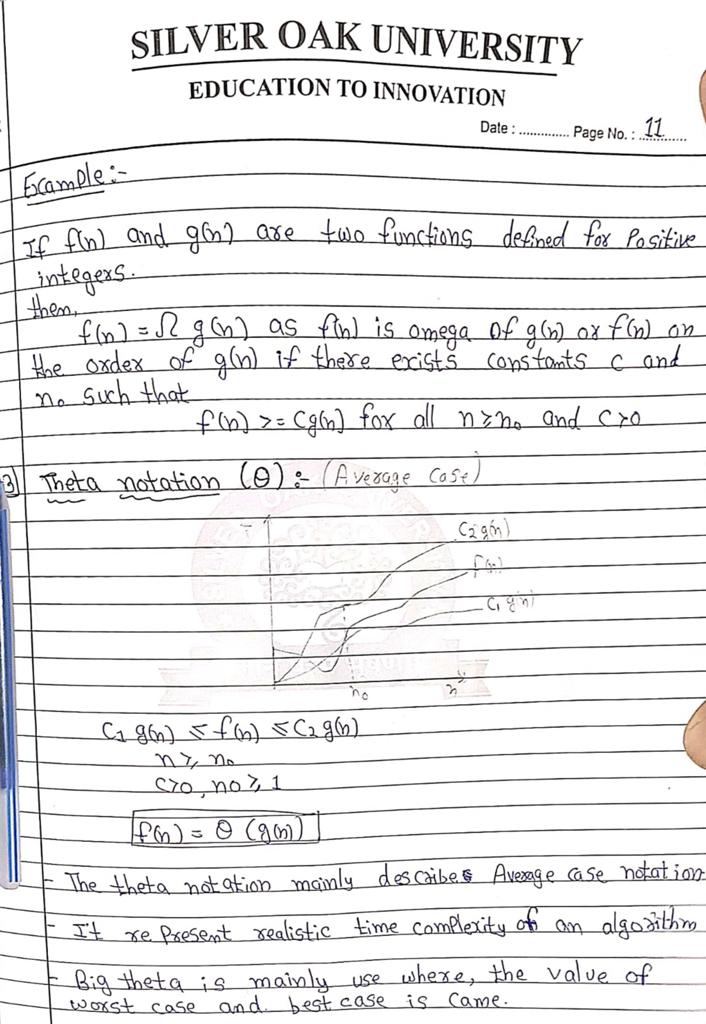 SILVER OAK UNIVERSITY
EDUCATION TO INNOVATION
Date : .............. Page No. : 11
Example:-
If f(n) and g(n) are two functions defined for Positive
integers.
then,
f(n) = Ω g(n) as f(n) is omega of g(n) or f(n) on
the order of g(n) if there exists constants c and
n₀ such that
f(n) >= Cg(n) for all n ≥ n₀ and c>0
3] Theta notation (θ) :- (Average Case)
C2 g(n)
f(n)
C1 g(n)
n₀
C1 g(n) ≤ f(n) ≤ C2 g(n)
n ≥ n₀
c>0, n0 ≥ 1
f(n) = θ (g(n))
- The theta notation mainly describes Average case notation
- It re Present realistic time complexity of an algorithm
- Big theta is mainly use where, the value of
worst case and best case is came.